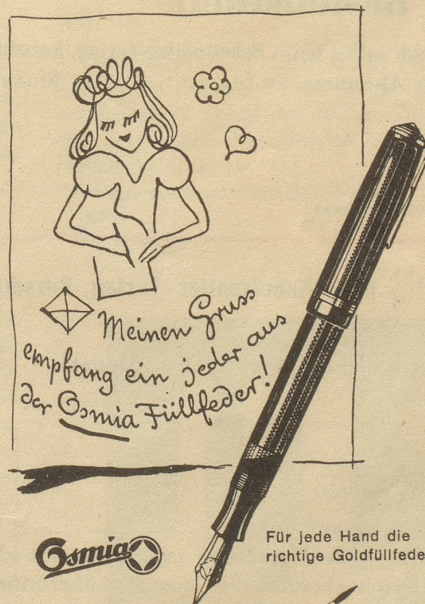 Meinen Gruss
empfang ein jeder aus
der Osmia Füllfeder!
Osmia
Für jede Hand die
richtige Goldfüllfede